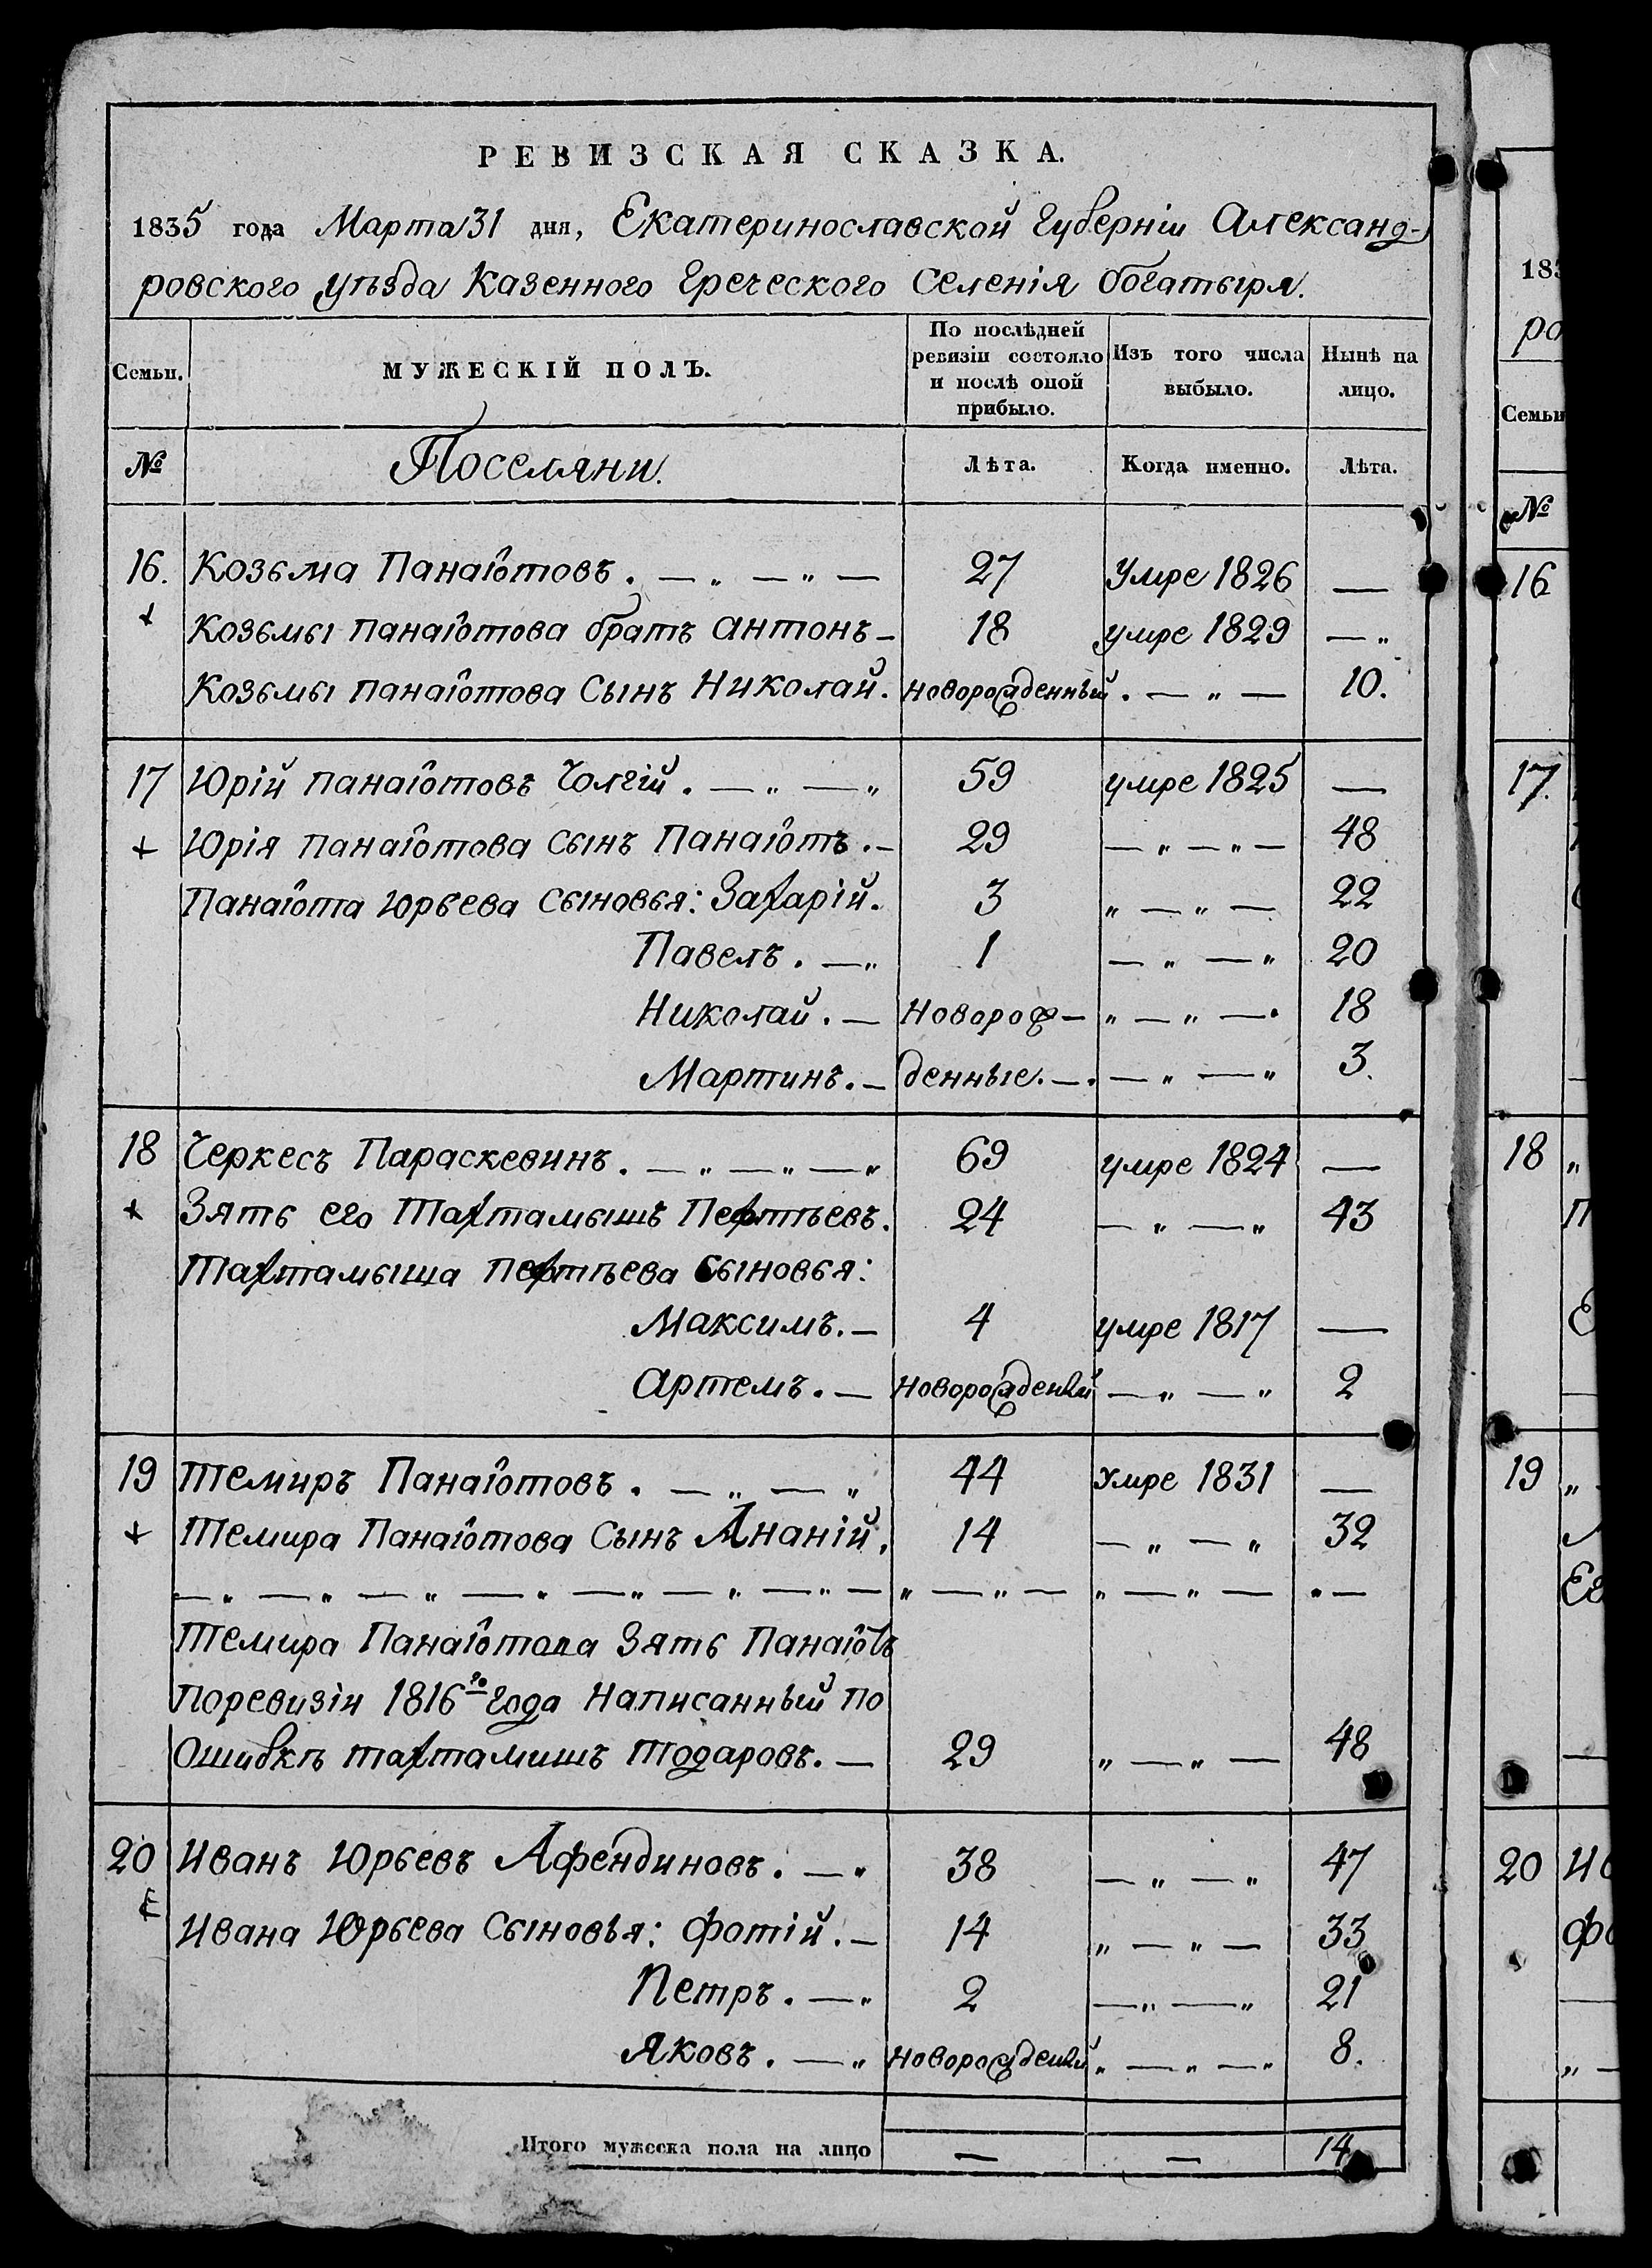 РЕВИЗСКАЯ СКАЗКА.
1835 года Марта 31 дня, Екатеринославской Губерніи Александ-
ровского уѣзда Казенного Греческого Селенія богатыря.
Семьи. МУЖЕСКІЙ ПОЛЪ. По послѣдней ревизіи состояло и послѣ оной прибыло. Изъ того числа выбыло. Нынѣ на лицо.
№ Поселяни. Лѣта. Когда именно. Лѣта.
16. Козьма Панаіотовъ. — „ — „ — 27 Умре 1826 —
Козьмы панаіотова братъ антонъ — 18 умре 1829 — „
Козьмы панаіотова Сынъ Николай. новорожденный. — „ — 10.
17 Юрій панаіотовъ Чолгій. — „ — „ 59 умре 1825 —
Юрія панаіотова Сынъ Панаіотъ. — 29 — „ — „ — 48
Панаіота Юрьева Сыновья: Захарій. 3 „ — „ — 22
Павелъ. — „ 1 — „ — „ 20
Николай. — Новорож- „ — „ — 18
Мартинъ. — денные. — — „ — „ 3.
18 Черкесъ Параскевинъ. — „ — „ — „ 69 умре 1824 —
Зять его Тахтамышъ Пефтѣевъ. 24 — „ — „ 43
Тахтамыша пефтѣева Сыновья:
Максимъ. — 4 умре 1817 —
Артемъ. — новорожденый — „ — „ 2
19 Темиръ Панаіотовъ. — „ — „ 44 Умре 1831 —
Темира Панаіотова Сынъ Ананій. 14 — „ — „ 32
— „ — „ — „ — „ — „ — „ — „ — „ — „ — „ — „ — „ —
Темира Панаіотова Зять Панаіотъ
поревизіи 1816го года Написанный по
Ошибкѣ тахтамишъ тодаровъ. — 29 „ — „ — 48
20 Иванъ Юрьевъ Афендиновъ. — „ 38 — „ — „ 47
Ивана Юрьева Сыновья: Фотій. — 14 „ — „ — 33
Петръ. — „ 2 — „ — „ 21
Яковъ. — „ новорожденый „ — „ — „ 8.
Итого мужеска пола на лицо — — 14
183
ро
Семьи
№
16
17.
18 „
П
Е
19 „
Ег
20 Ив
Фо
„ —